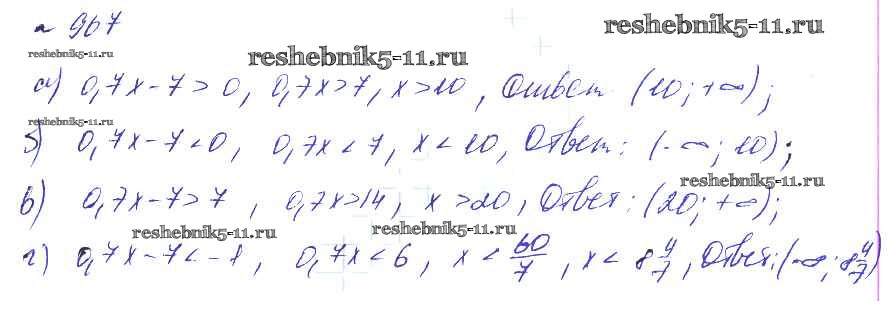 n 967
reshebnik5-11.ru
reshebnik5-11.ru
reshebnik5-11.ru
а) 0,7x - 7 > 0, 0,7x > 7, x > 10, Ответ (10; +∞);
reshebnik5-11.ru
б) 0,7x - 7 < 0, 0,7x < 7, x < 10, Ответ: (-∞; 10);
reshebnik5-11.ru
в) 0,7x - 7 > 7, 0,7x > 14, x > 20, Ответ: (20; +∞);
reshebnik5-11.ru reshebnik5-11.ru
г) 0,7x - 7 < -1, 0,7x < 6, x < 60/7, x < 8 4/7, Ответ: (-∞; 8 4/7)